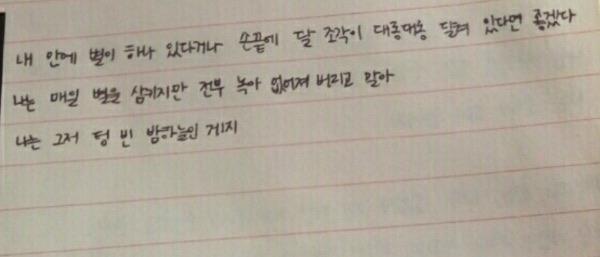 내 안에 별이 하나 있다거나 손끝에 달 조각이 대롱대롱 달려 있다면 좋겠다
나는 매일 별을 삼키지만 전부 녹아 없어져 버리고 말아
나는 그저 텅 빈 밤하늘인 게지